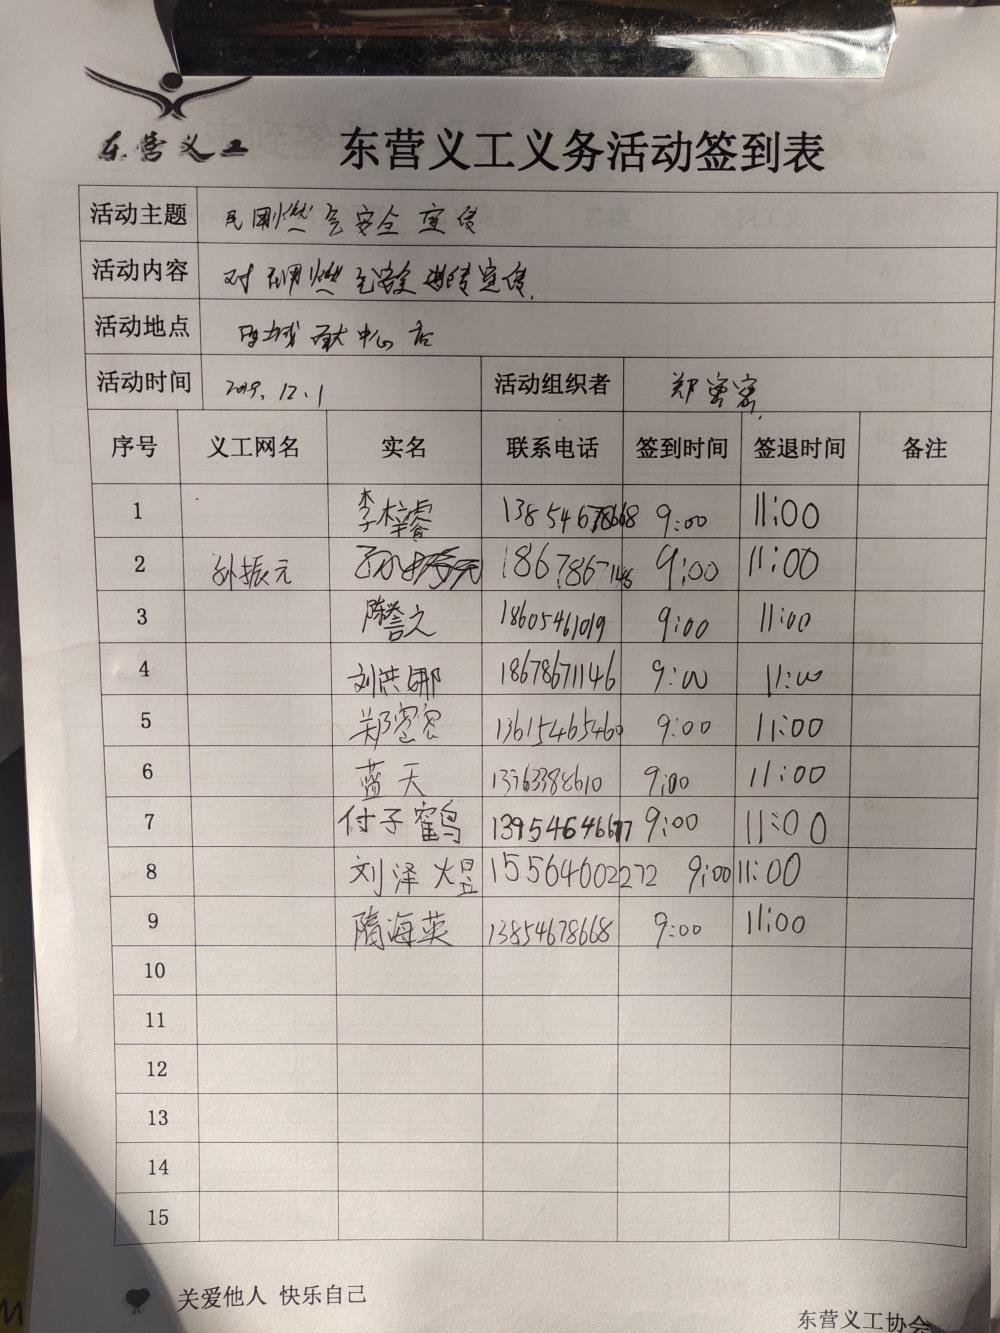 东营义工 东营义工义务活动签到表
活动主题 民用燃气安全宣传
活动内容 对民用燃气安全进行宣传.
活动地点 中心
活动时间 2019.12.1 活动组织者 郑密密
序号 义工网名 实名 联系电话 签到时间 签退时间 备注
1 李梓睿 13854678668 9:00 11:00
2 孙振元 18678671146 9:00 11:00
3 陈誉之 18605461019 9:00 11:00
4 刘洪娜 18678671146 9:00 11:00
5 郑密密 13615465460 9:00 11:00
6 蓝天 13763388610 9:00 11:00
7 付子鹤 13954646677 9:00 11:00
8 刘泽煜 15564602272 9:00 11:00
9 隋海英 13854678668 9:00 11:00
10
11
12
13
14
15
关爱他人 快乐自己
东营义工协会